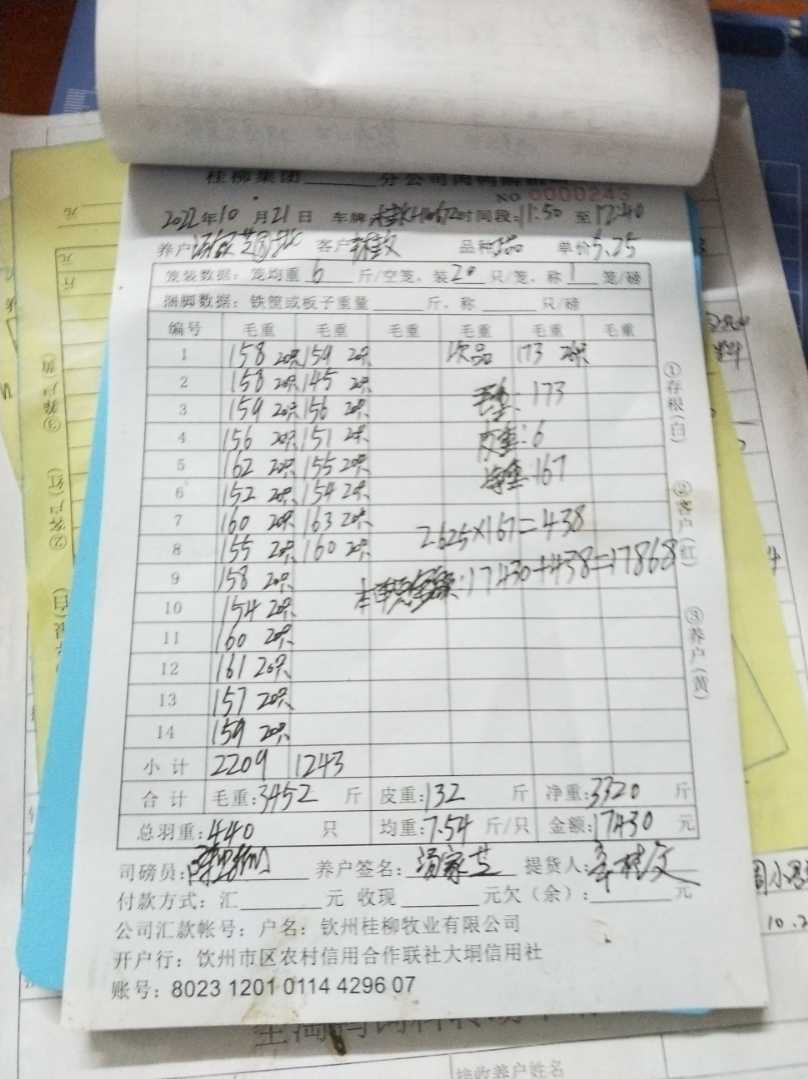 桂柳集团 分公司肉鸭销售单
NO 0000243
2022年10月21日 车牌 时间段:11:50 至12:40
养户 客户 品种 单价5.25
笼装数据：笼均重 6 斤/空笼、装 20 只/笼、称 1 笼/磅
捆脚数据：铁筐或板子重量 斤、称 只/磅
编号 毛重 毛重 毛重 毛重 毛重 毛重
1 158 20只 159 20只 次品 173 20只
2 158 20只 145 20只 毛重: 173
3 159 20只 156 20只 皮重: 6
4 156 20只 151 20只 净重: 167
5 162 20只 155 20只
6 152 20只 154 20只
7 160 20只 163 20只 2.625×167=438
8 155 20只 160 20只
9 158 20只 本单总金额:17430+438=17868
10 154 20只
11 160 20只
12 161 20只
13 157 20只
14 159 20只
小计 2209 1243
合计 毛重:3452 斤 皮重:132 斤 净重:3320 斤
总羽重:440 只 均重:7.54 斤/只 金额:17430 元
司磅员: 养户签名: 提货人:
付款方式：汇 元 收现 元欠（余）: 元
公司汇款帐号：户名：钦州桂柳牧业有限公司
开户行：饮州市区农村信用合作联社大垌信用社
账号：8023 1201 0114 4296 07
①存根(白)
②客户(红)
③养户(黄)
③养户
②客户(红)
(白)
元
元
斤
10.2
接收养户姓名